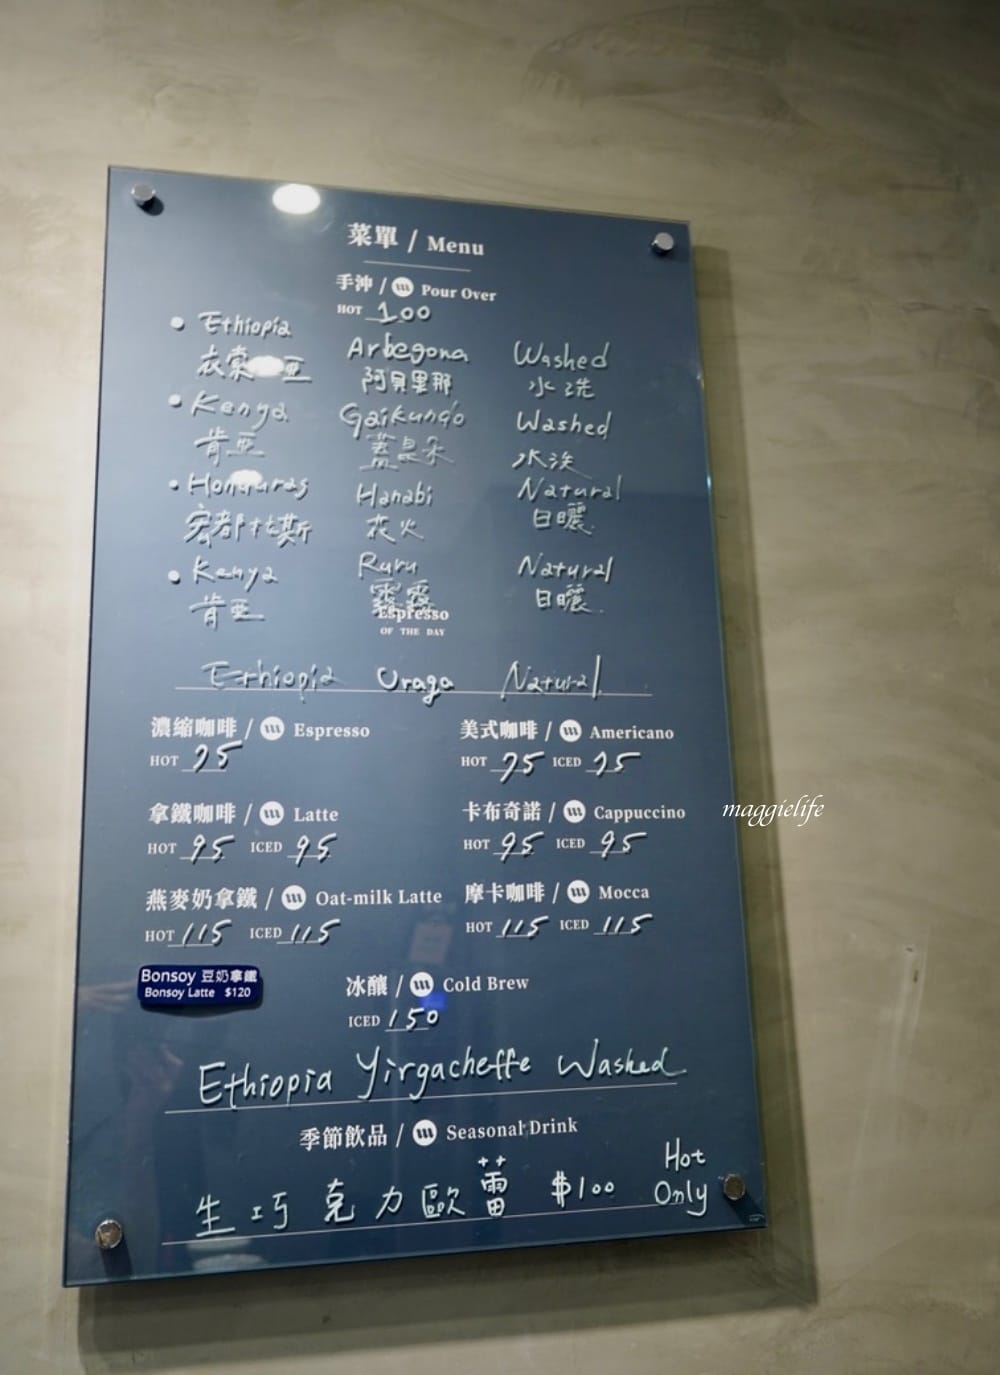 菜單 / Menu
手沖 / Pour Over
HOT 100
• Ethiopia Arbegona Washed
衣索 亞 阿貝里那 水洗
• Kenya Gaikundo Washed
肯亞 水洗
• Honduras Hanabi Natural
宏都拉斯 花火 日曬
• Kenya Ruru Natural
肯亞 日曬
Espresso
OF THE DAY
Ethiopia Uraga Natural
濃縮咖啡 / Espresso
HOT 75
美式咖啡 / Americano
HOT 75 ICED 75
拿鐵咖啡 / Latte
HOT 95 ICED 95
卡布奇諾 / Cappuccino
HOT 95 ICED 95
燕麥奶拿鐵 / Oat-milk Latte
HOT 115 ICED 115
摩卡咖啡 / Mocca
HOT 115 ICED 115
Bonsoy 豆奶拿鐵
Bonsoy Latte $120
冰釀 / Cold Brew
ICED 150
Ethiopia Yirgacheffe Washed
季節飲品 / Seasonal Drink
生巧克力歐蕾 $100 Hot Only
maggielife